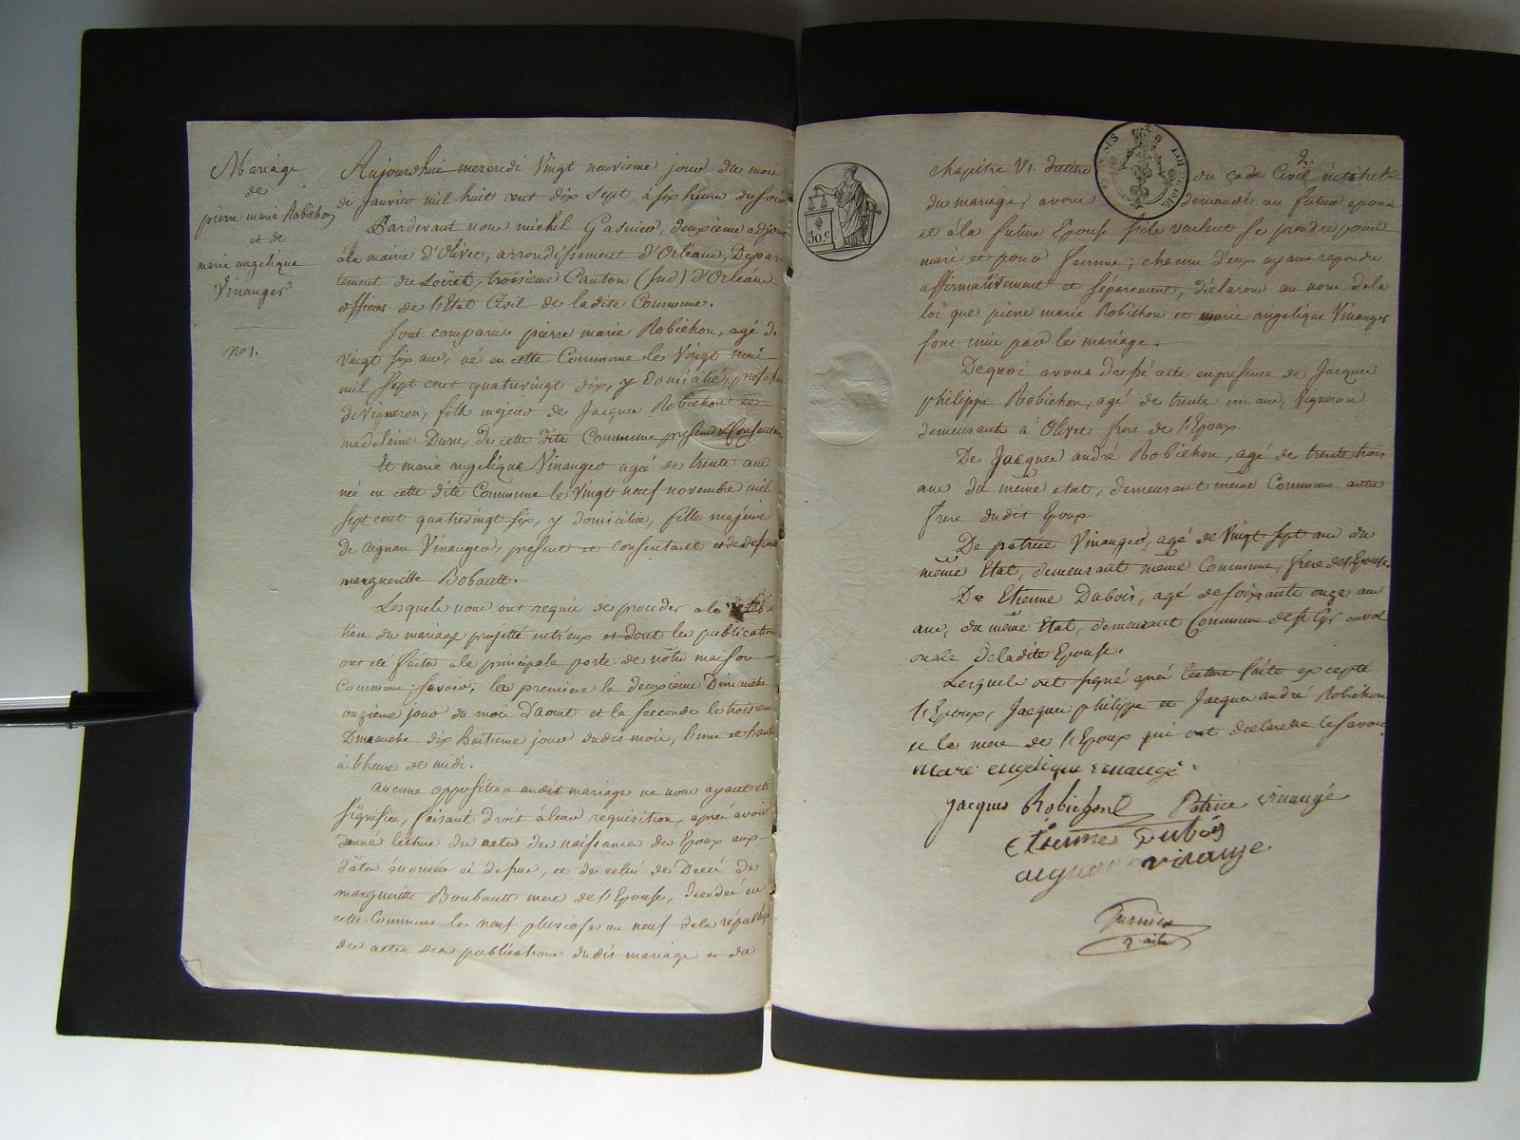 Mariage
de
pierre marie Robichon
et de
marie angelique
Vinanger
no 1.
Aujourdhui mercredi Vingt neuvieme jour du mois
de Janvier mil huit cent dix sept, à six heures du soir
Pardevant nous michel Garnier, deuxieme adjoint
à la mairie d'Olivet, arrondissement d'Orléans, Depar
tement du Loiret, troisieme Canton (sud) d'Orléans
officier de l'Etat Civil de ladite Commune.
Sont comparus pierre marie Robichon, agé de
vingt six ans, né en cette Commune le Vingt mai
mil sept cent quatrevingt dix, y domicilié, profession
de Vigneron, fils majeur de Jacques Robichon et
madeleine Dure, de cette dite Commune, present et Consentant
Et marie angelique Vinanger agée de trente ans
née en cette dite Commune le Vingt neuf novembre mil
sept cent quatrevingt six, y domiciliée, fille majeure
de aignan Vinanger, present et consentant et de defunte
margueritte Bobault.
Lesquels nous ont requis de proceder a la célébra
tion du mariage projetté entr'eux et dont les publications
ont été faites a la principale porte de nôtre maison
Commune; savoir, la premiere le deuxieme Dimanche
onzieme jour du mois d'aout et la seconde le troisieme
Dimanche dix huitieme jour dudit mois, l'une et l'autre
à l'heure de midi.
aucune opposition audit mariage ne nous ayant été
signifiée, faisant droit à leur requisition, après avoir
donné lecture des actes de naissance des Epoux aux
dates énoncées ci dessus, et de celui de Decès de
margueritte Boubault mere de l'Epouse, decedée en
cette Commune le neuf pluviose an neuf de la républiq
des actes des publications dudit mariage et du
2
chapitre VI. du titre du code Civil intitulé
du mariage, avons demandé au futur epoux
et à la future Epouse s'ils veulent se prendre pour
mari et pour femme; chacun d'eux ayant repondu
affirmativement et séparement, déclarons au nom de la
loi que pierre marie Robichon et marie angelique Vinanger
sont unis par le mariage.
De quoi avons dressé acte en presence de Jacques
philippe Robichon, agé de trente un ans, Vigneron
demeurant à Olivet frere de l'Epoux
De Jacques andré Robichon, agé de trente trois
ans du même etat, demeurant même Commune autre
frere dudit Epoux
De patrice Vinanger, agé de vingt sept ans du
même Etat, demeurant même Commune, frere de l'Epouse.
De Etienne Dubois, agé de soixante onze ans
ans, du même Etat, demeurant Commune de St Cyr en val
oncle de ladite Epouse.
Lesquels ont signé après lecture faite excepté
l'Epoux, Jacques philippe et Jacques andré Robichon
et la mere de l'Epoux qui ont declaré ne le savoir
marie angelique vinangé
Jacques Robichon Patrice vinangé
Etienne Dubois
aignan vinange
Garnier
30 c